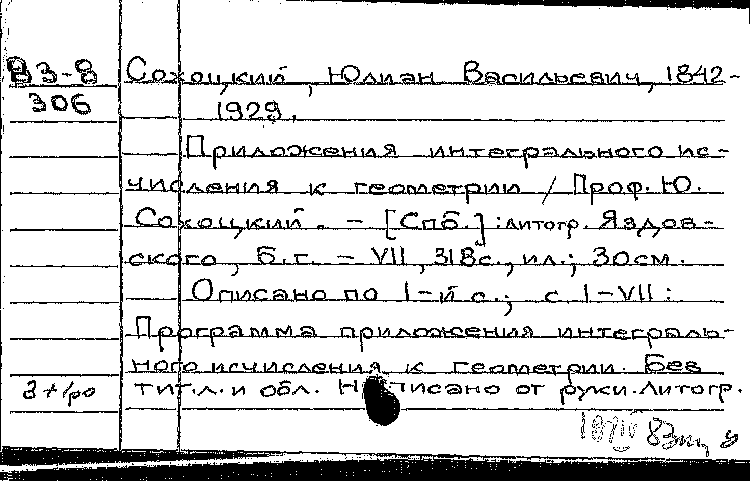 В3-8 Сохоцкий, Юлиан Васильевич, 1842-
306 1929.
Приложения интегрального ис-
числения к геометрии / Проф. Ю.
Сохоцкий. – [Спб.] : литогр. Яздов-
ского, б.г. – VII, 318с., ил.; 30см.
Описано по 1-й с.; с. I-VII:
Программа приложения интеграль-
ного исчисления к геометрии. Без
тит.л. и обл. Написано от руки. Литогр.